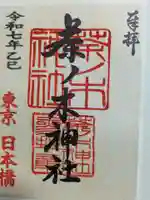 奉拝
茶ノ木神社
令和七年乙巳
東京 日本橋